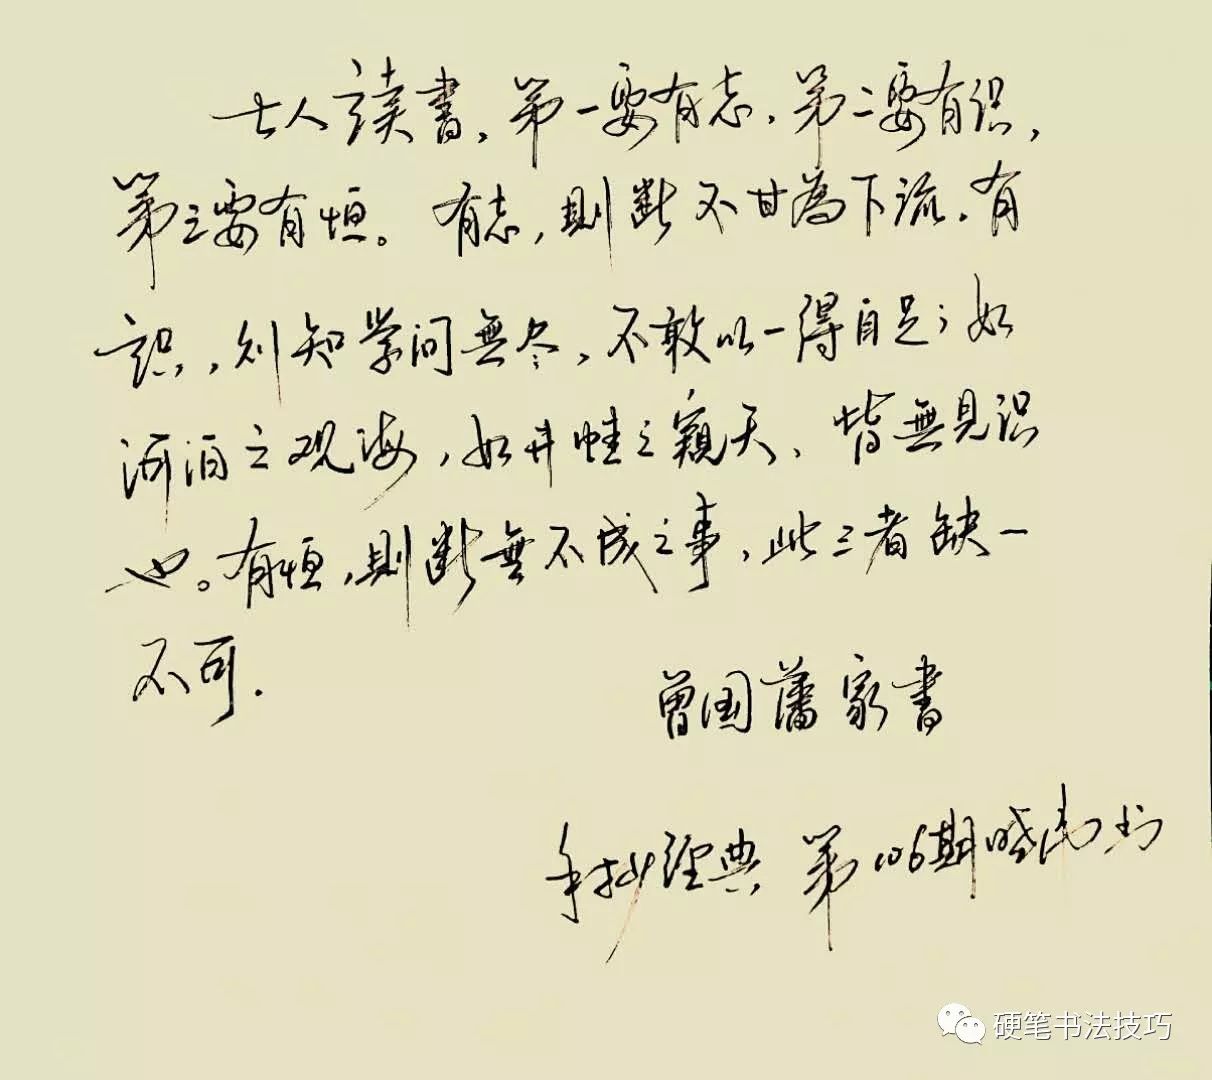 士人读書,第一要有志,第二要有识,
第三要有恒。有志,則断不甘為下流。有
识,则知学问無尽,不敢以一得自足;如
河泊之观海,如井蛙之窺天、皆無見识
也。有恒,則断無不成之事,此三者缺一
不可.
曾国藩家書
手抄经典 第106期晓南书
硬笔书法技巧